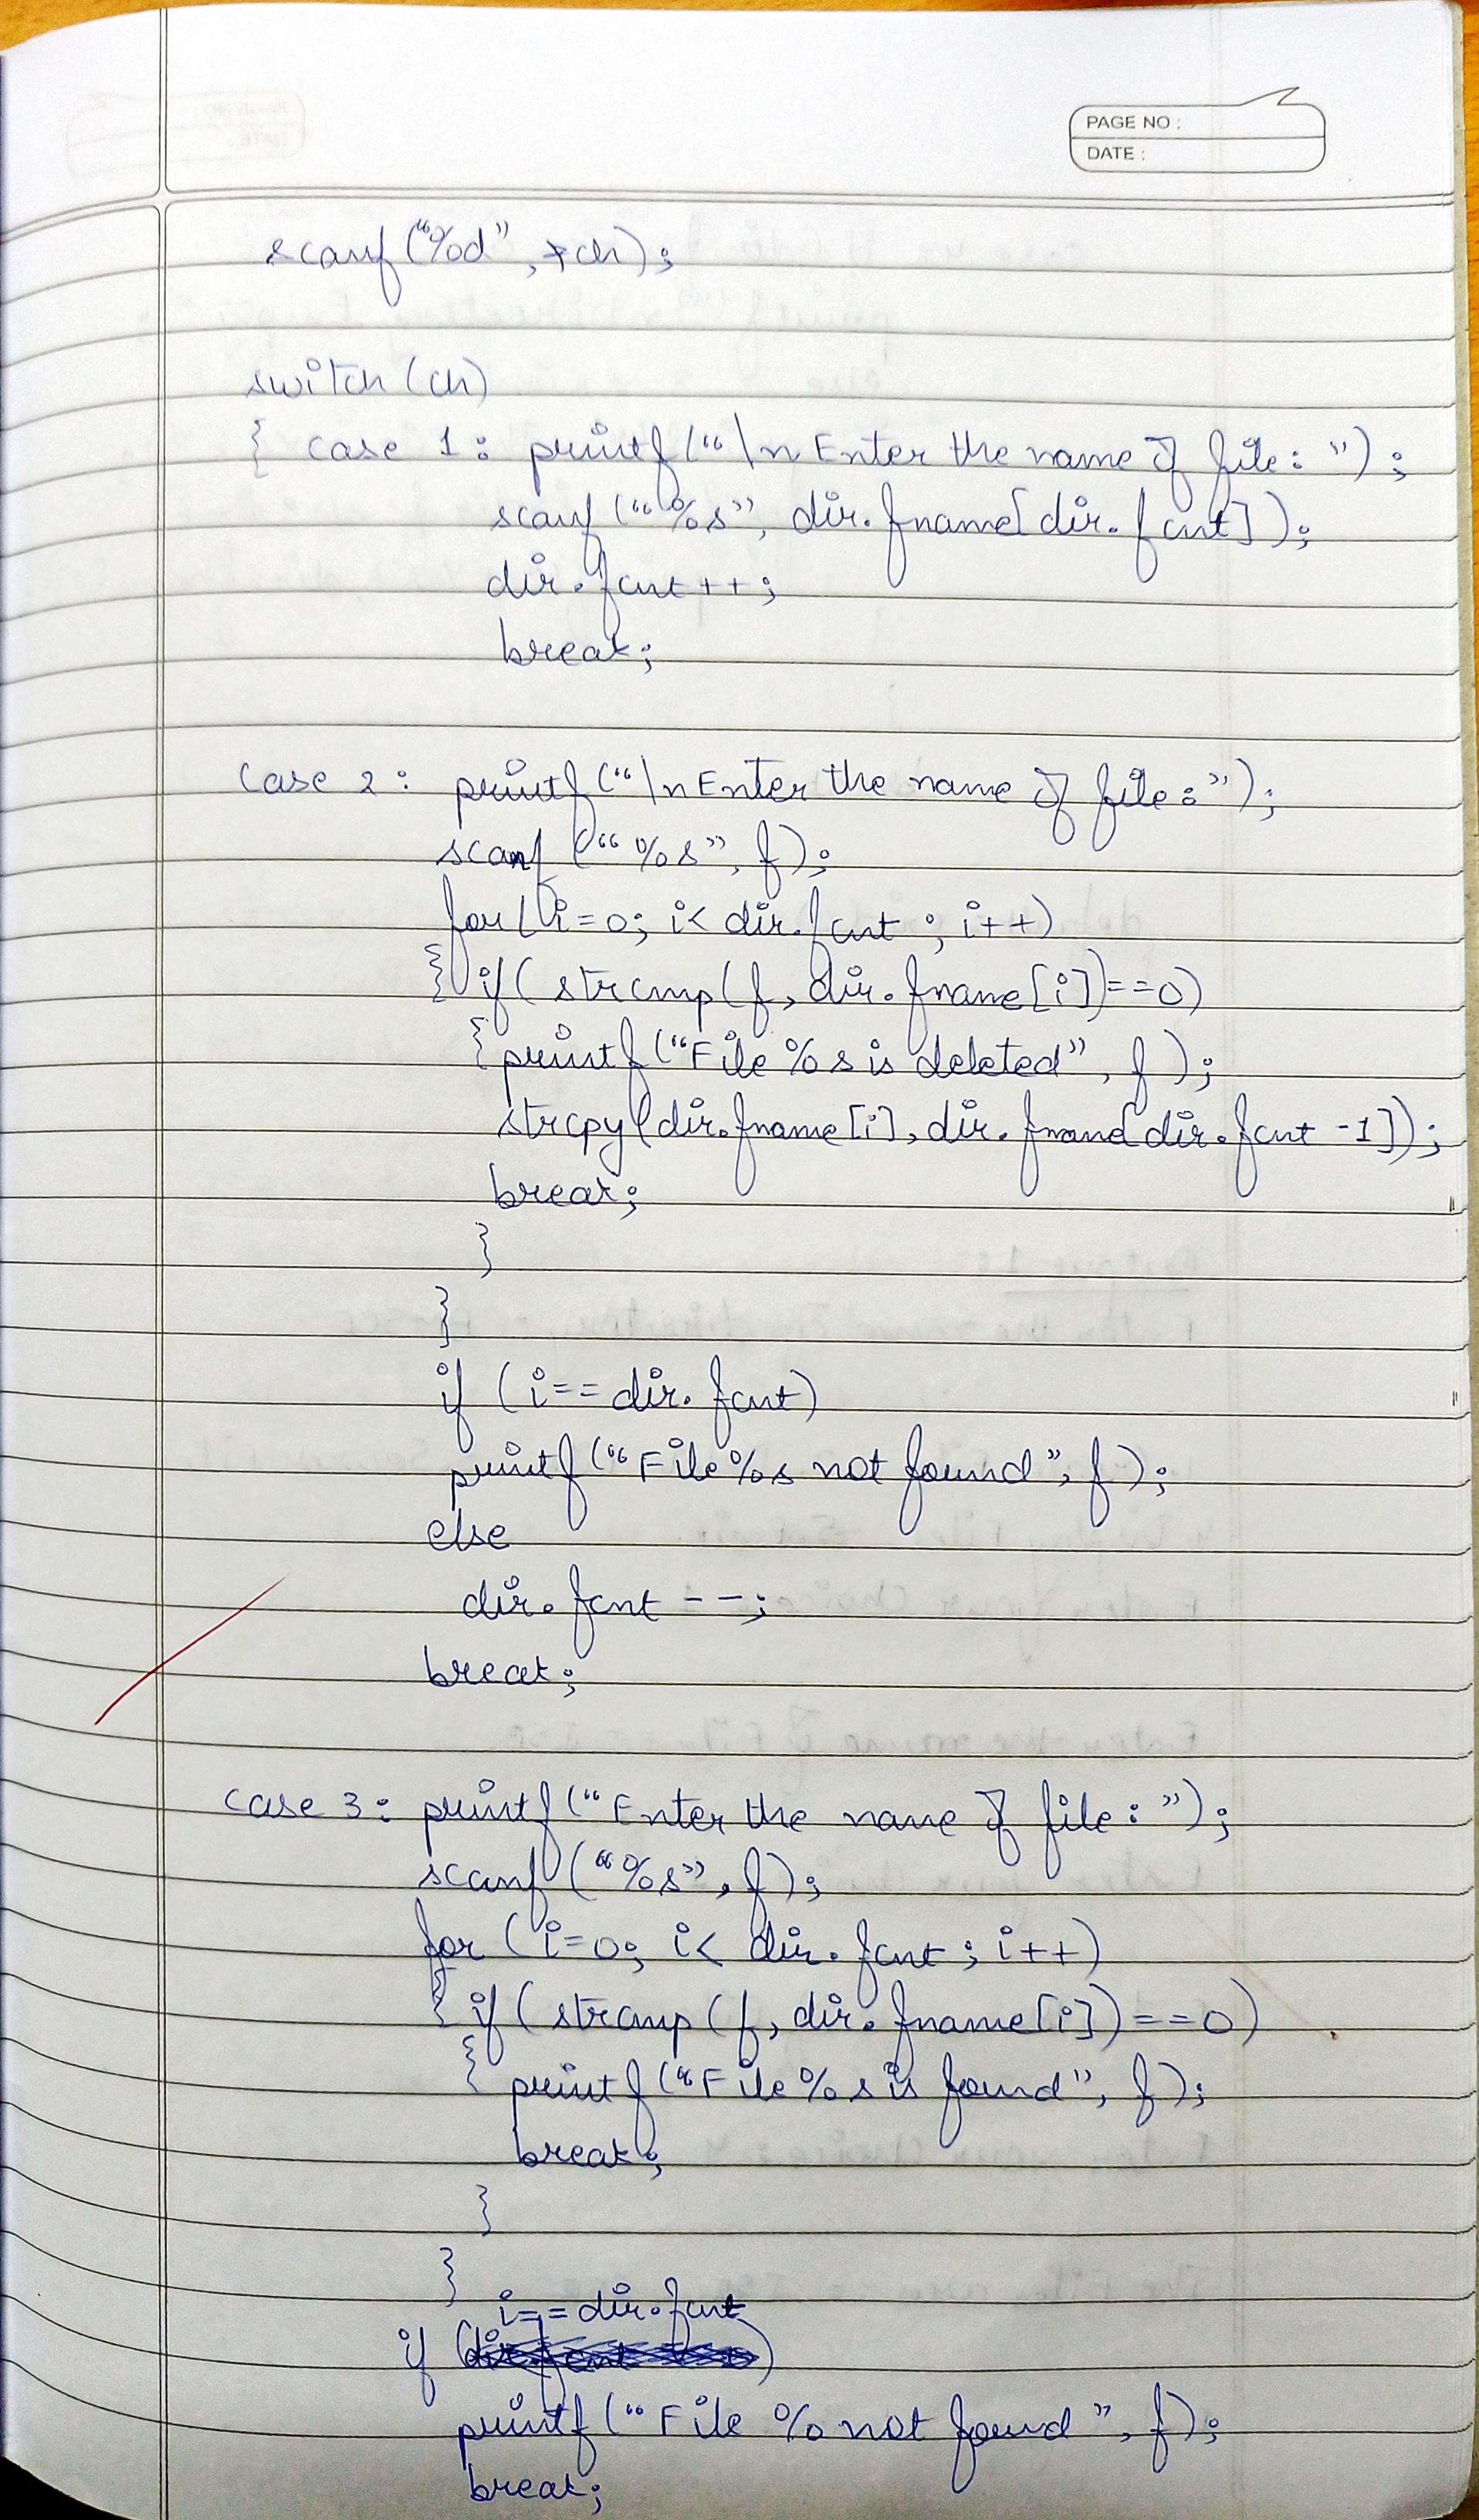 PAGE NO :
DATE :
scanf ("%d", *ch);
switch (ch)
{ case 1: printf ("\n Enter the name of file: ");
scanf ("%s", dir.fname[dir.fcnt]);
dir.fcnt++;
break;
case 2: printf ("\n Enter the name of file:");
scanf ("%s", f);
for (i=0; i< dir.fcnt ; i++)
{ if( strcmp (f, dir.fname[i])==0)
{ printf ("File %s is deleted", f );
strcpy(dir.fname[i], dir.fname[dir.fcnt -1]);
break;
}
}
if (i==dir.fcnt)
printf ("File %s not found", f );
else
dir.fcnt --;
break;
case 3: printf ("Enter the name of file: ");
scanf ("%s", f);
for (i=0; i< dir.fcnt ; i++)
{ if ( strcmp (f, dir.fname[i])==0)
{ printf ("File %s is found", f);
break;
}
}
i==dir.fcnt
if ( )
printf ("File % not found ", f);
break;